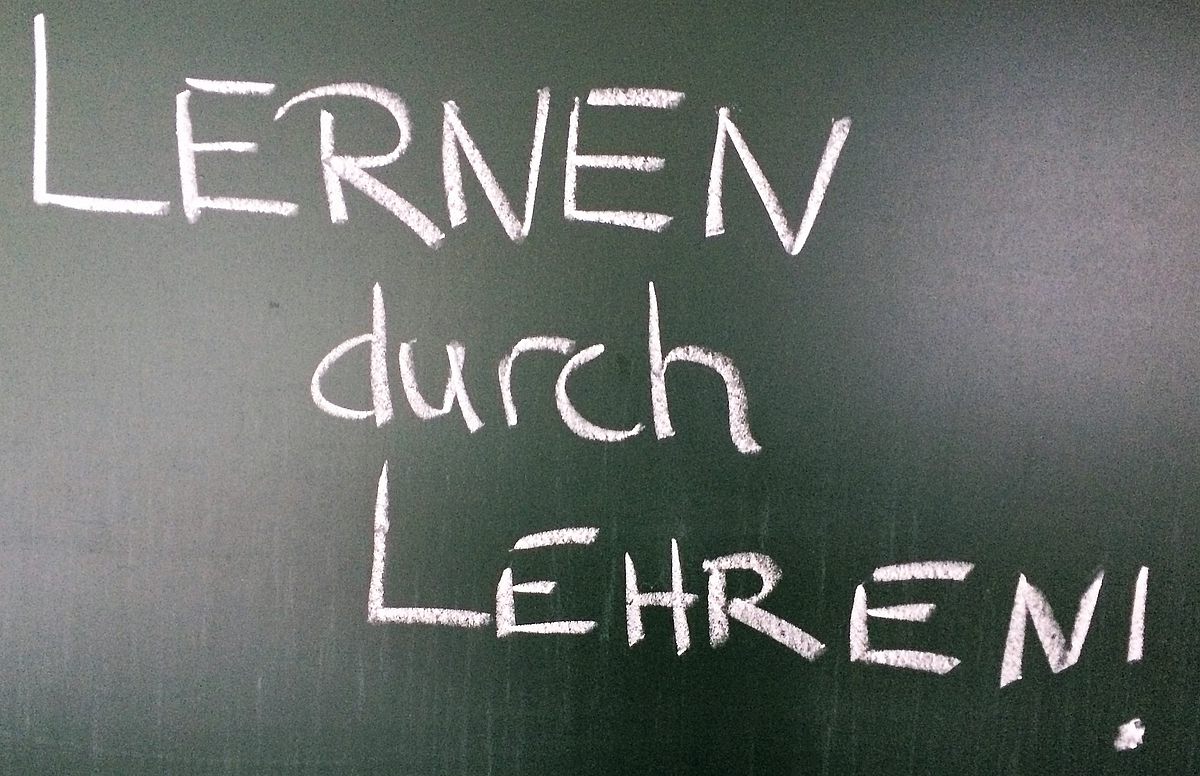 LERNEN
durch
LEHREN!